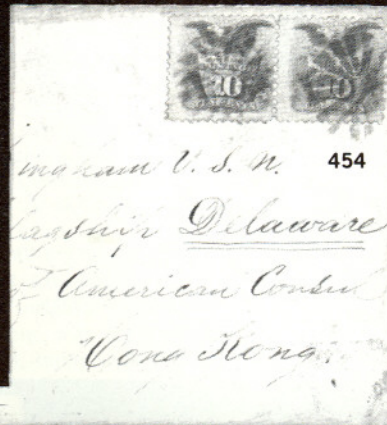 10 10
454
ingham U.S.N.
lagship Delaware
American Consul
Hong Kong.